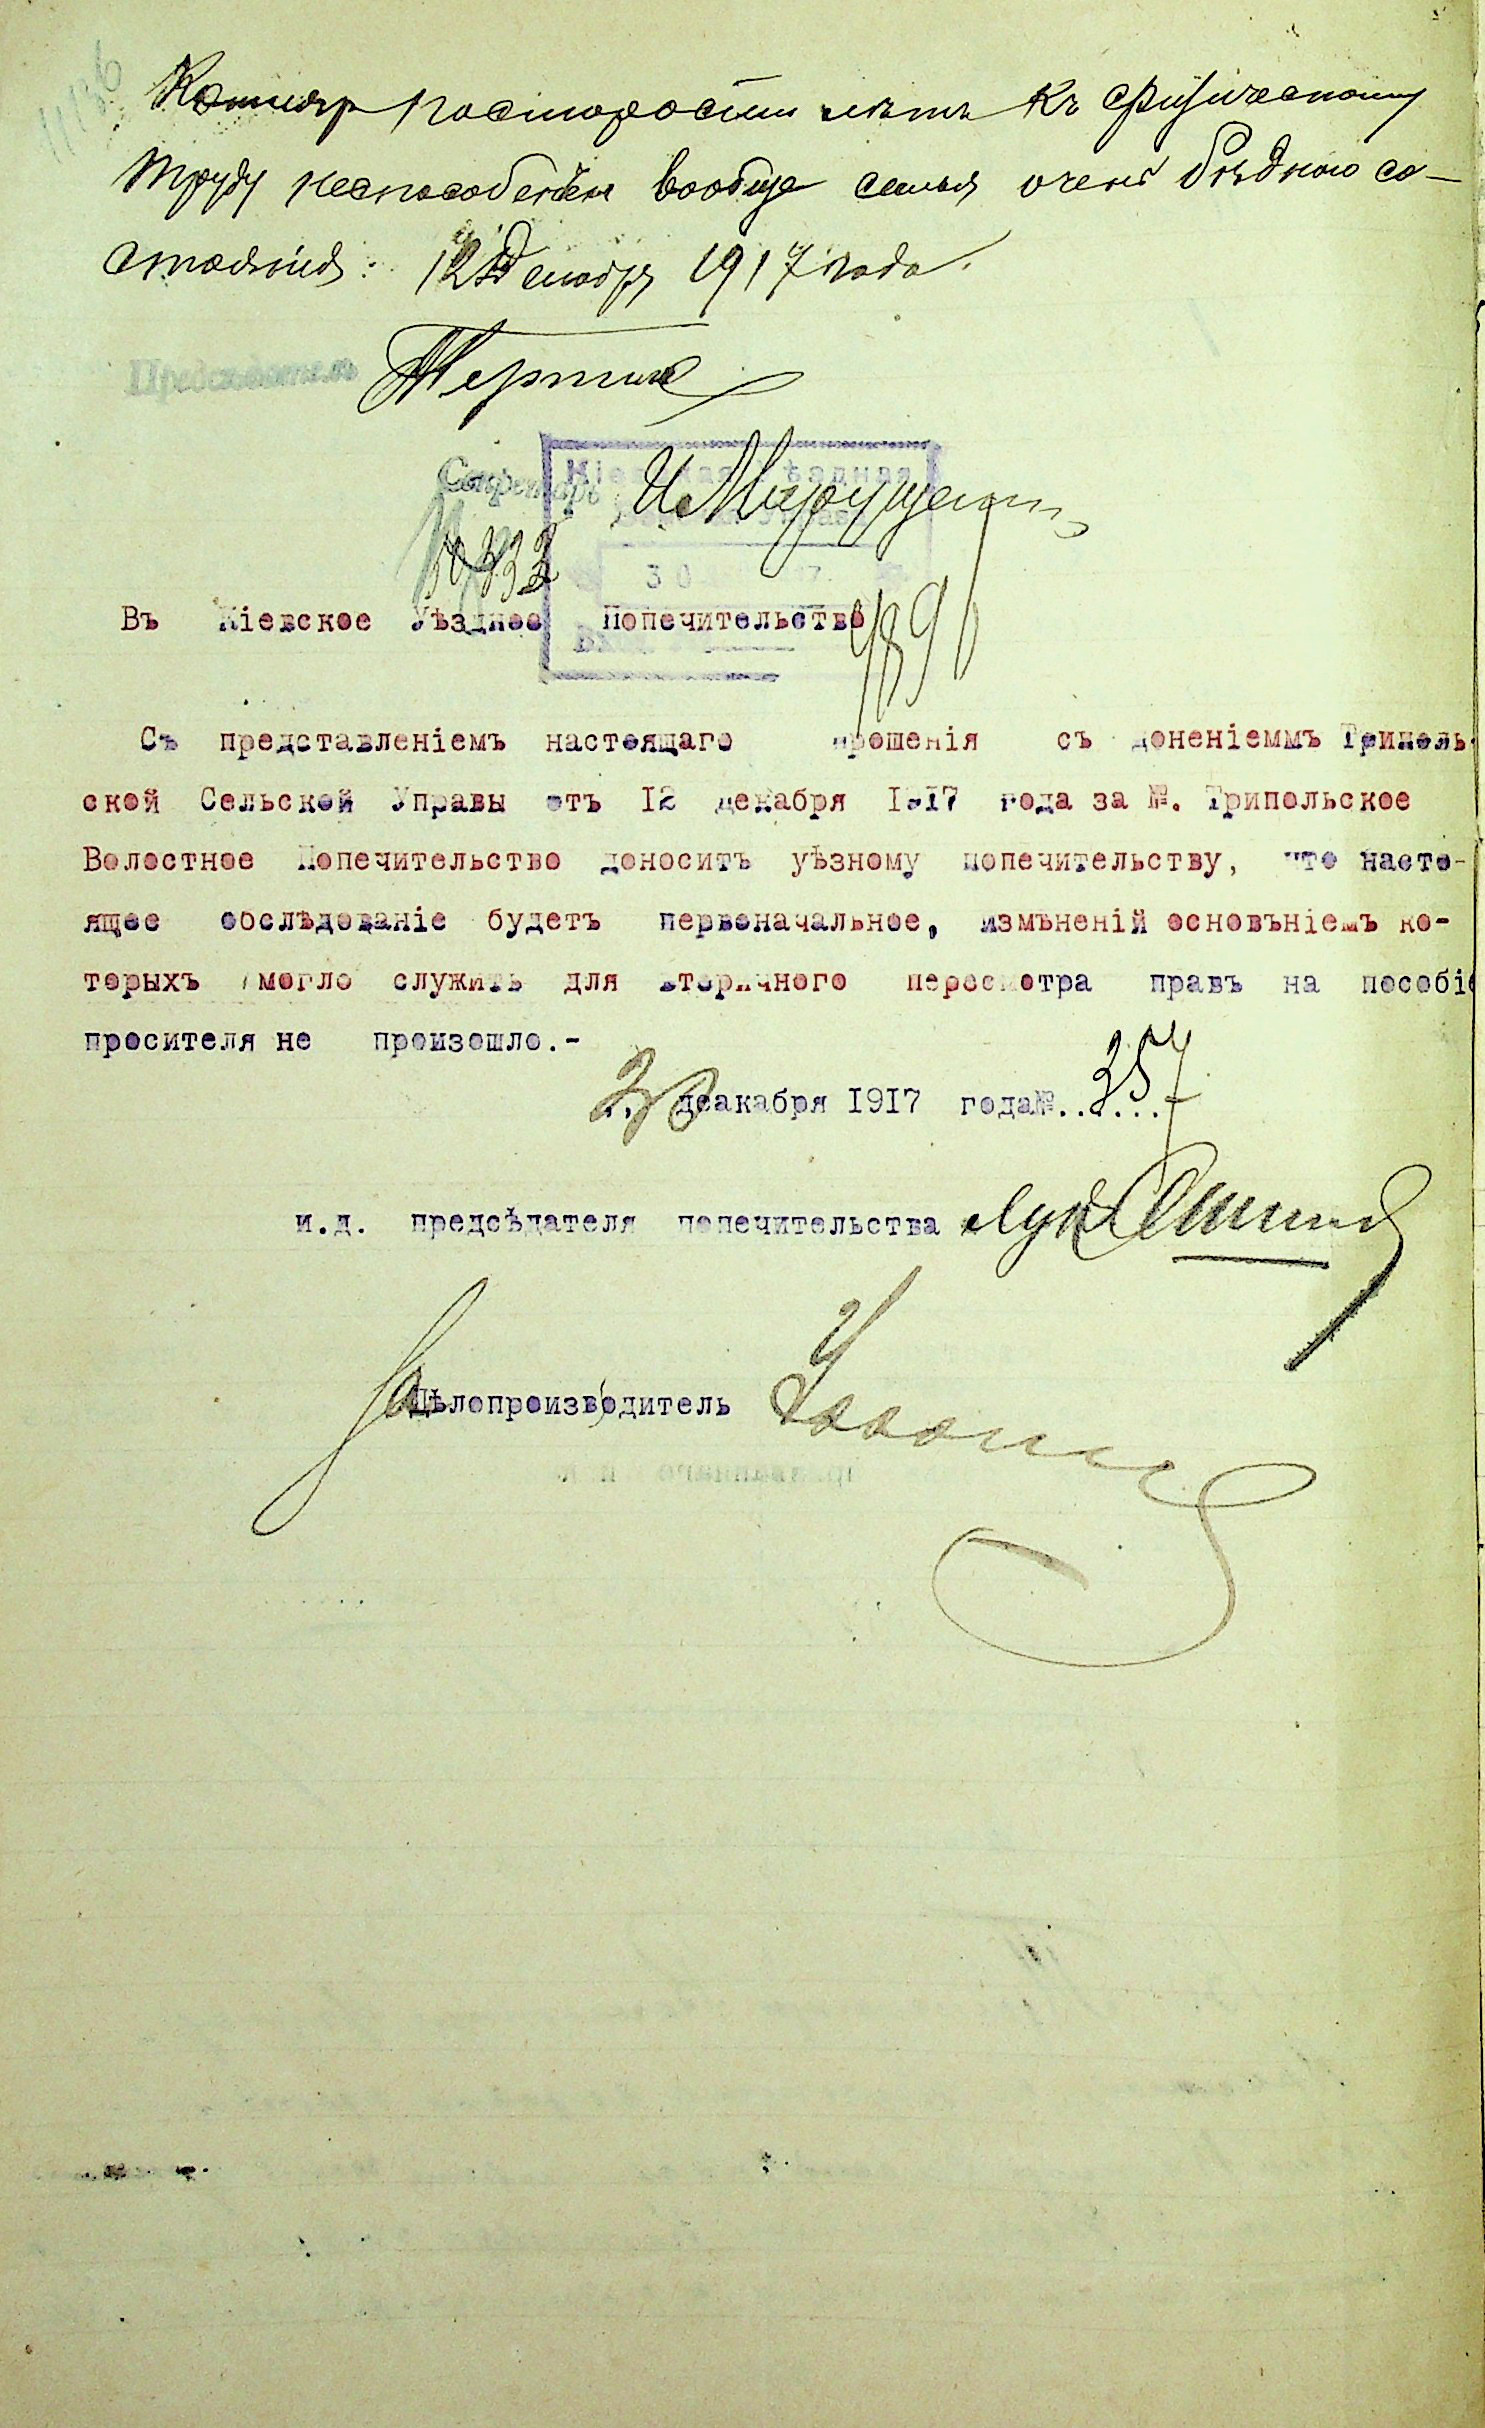 Котляр по старости лѣтъ къ физическому
труду неспособенъ вообще семья очень бѣдного со-
стоянія: 12 Декабря 1917 года.
Предсѣдатель
Секретарь
30
4896
Въ Кіевское Уѣздное Попечительство
Съ представленіемъ настоящаго прошенія съ доненіеммъ Триполь-
ской Сельской Управы отъ 12 декабря 1917 года за №. Трипольское
Волостное Попечительство доноситъ уѣзному попечительству, что насто-
ящее обслѣдованіе будетъ первоначальное, измѣненій основъніемъ ко-
торыхъ могло служить для вторичного пересмотра правъ на пособіе
просителя не произошло.-
20 деакабря 1917 года№......357
и.д. предсѣдателя попечительства
Дѣлопроизводитель